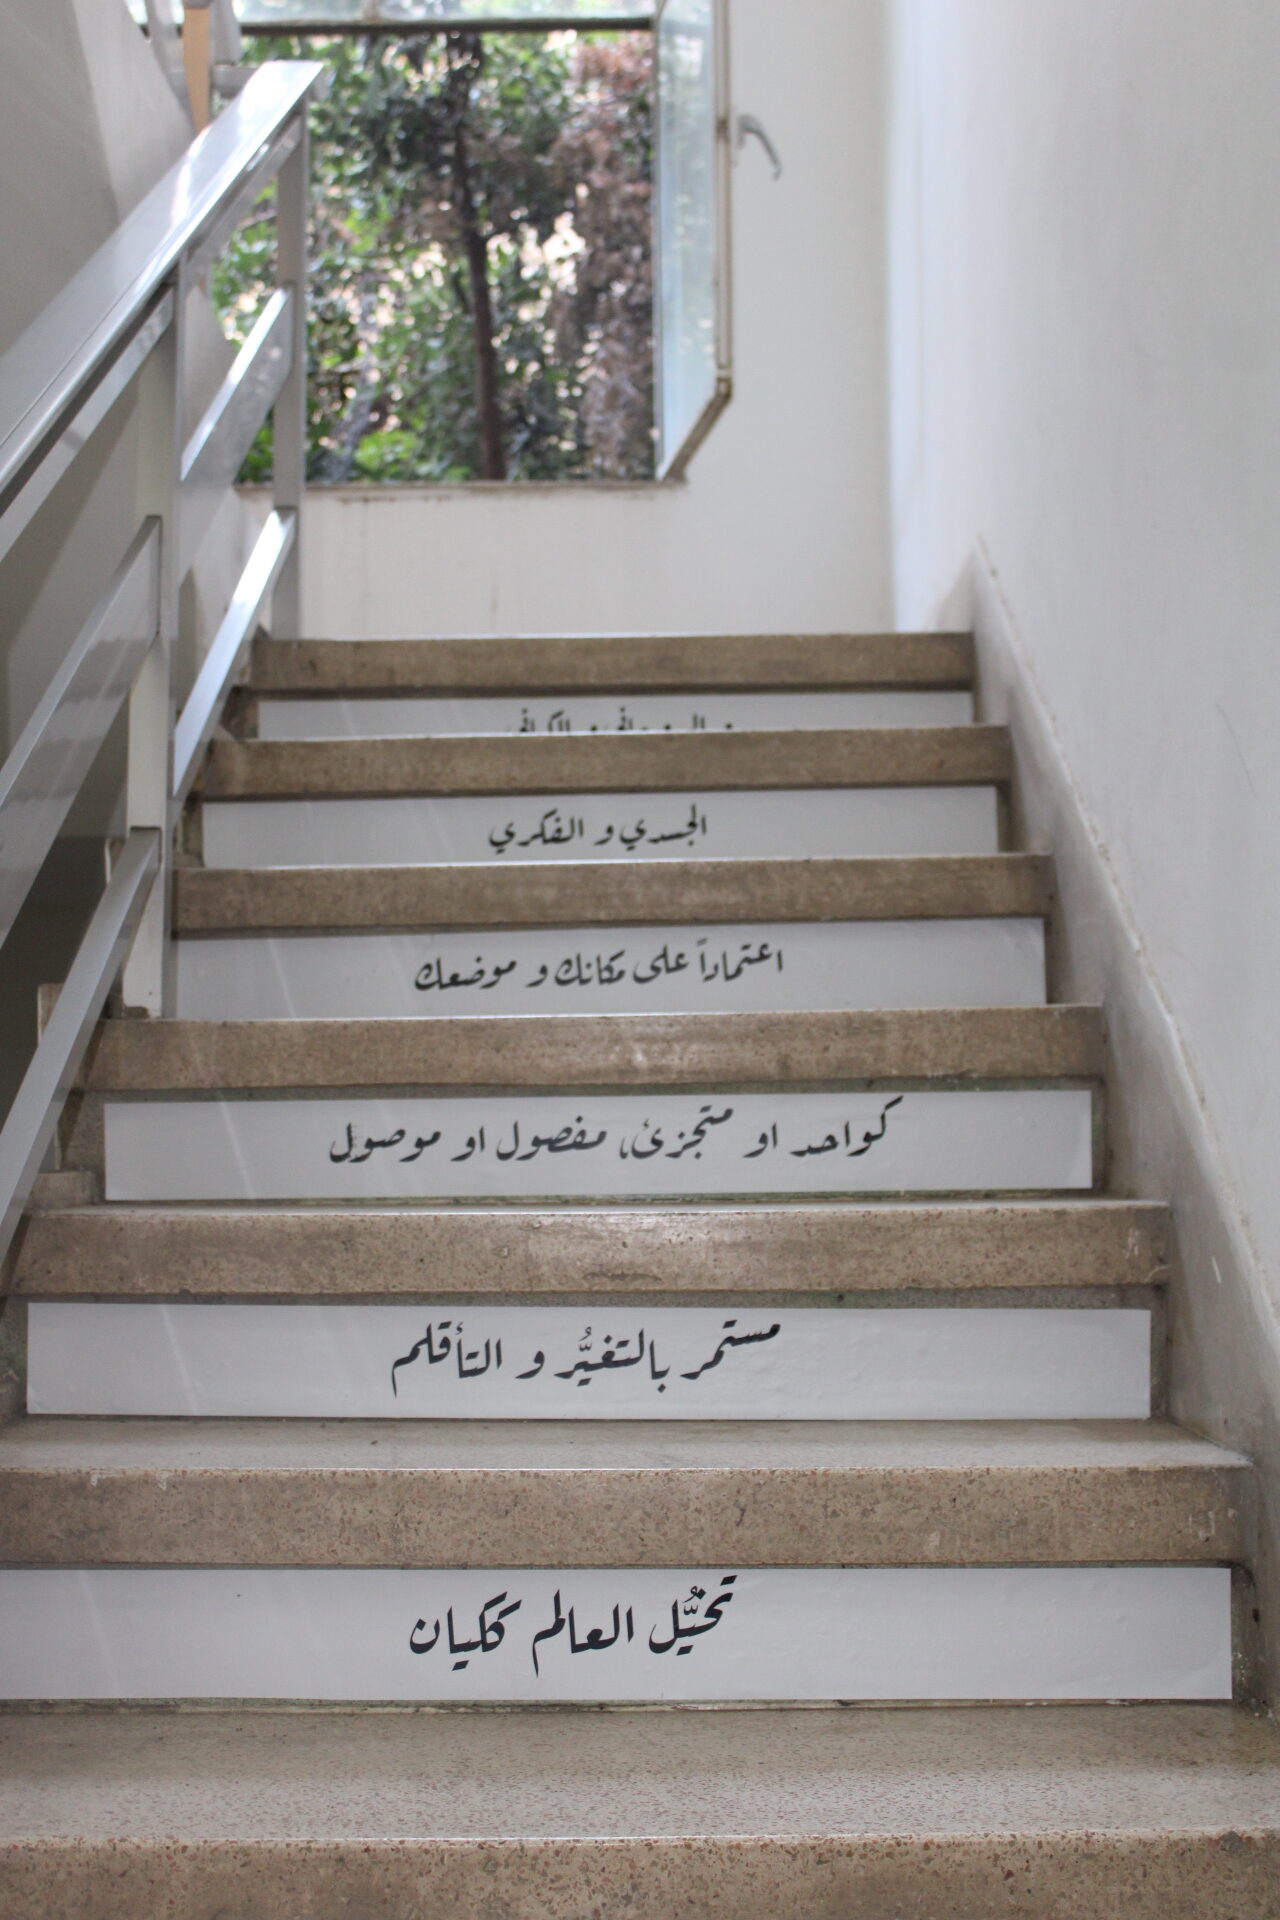 تخيُّل العالم ككيان
مستمر بالتغيُّر و التأقلم
كواحد او متجزئ، مفصول او موصول
اعتماداً على مكانك و موضعك
الجسدي و الفكري